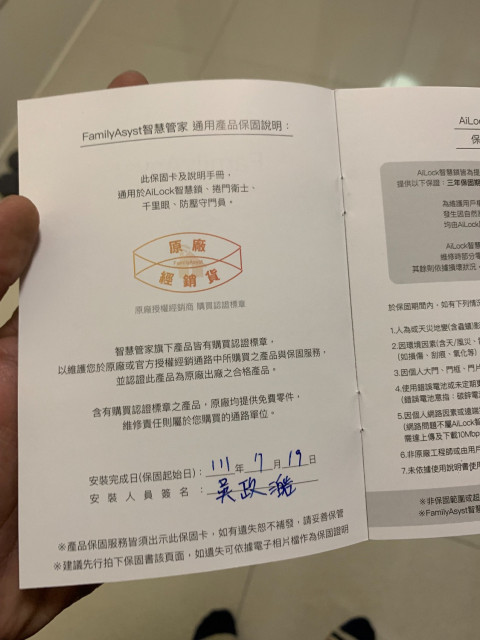 FamilyAsyst智慧管家 通用產品保固說明：
此保固卡及說明手冊，
適用於AiLock智慧鎖、捲門衛士、
千里眼、防壓守門員。
原廠
FamilyAsyst
經銷貨
原廠授權經銷商 購買認證標章
智慧管家旗下產品皆有購買認證標章，
以維護您於原廠或官方授權經銷通路中所購買之產品與保固服務，
並認證此產品為原廠出廠之合格產品。
含有購買認證標章之產品，原廠均提供免費零件，
維修責任則屬於您購買的通路單位。
安裝完成日(保固起始日)：111年7月19日
安裝人員簽名：吳政澔
※產品保固服務皆須出示此保固卡，如有遺失恕不補發，請妥善保管
※建議先行拍下保固書該頁面，如遺失可依據電子相片檔作為保固證明
AiL
保
AiLock智慧鎖皆為提
提供以下保證：三年保固期
為維護用戶權
發生因自然
均由AiLo
AiLock智慧
維修時部分零
其餘則依據損壞狀況，
於保固期間內，如有下列情況
1.人為或天災地變(含蟲蟻
2.因環境因素(含天/風災、
(如損傷、刮痕、氧化等)
3.因個人大門、門框、門片
4.使用錯誤電池或未定期更
(錯誤電池意指：碳鋅電
5.因個人網路因素或遠端
(網路問題不屬AiLock智
需達上傳及下載10Mbp
6.非原廠工程師或由用戶
7.未依據使用說明書使用
※非保固範圍或超
※FamilyAsyst智慧